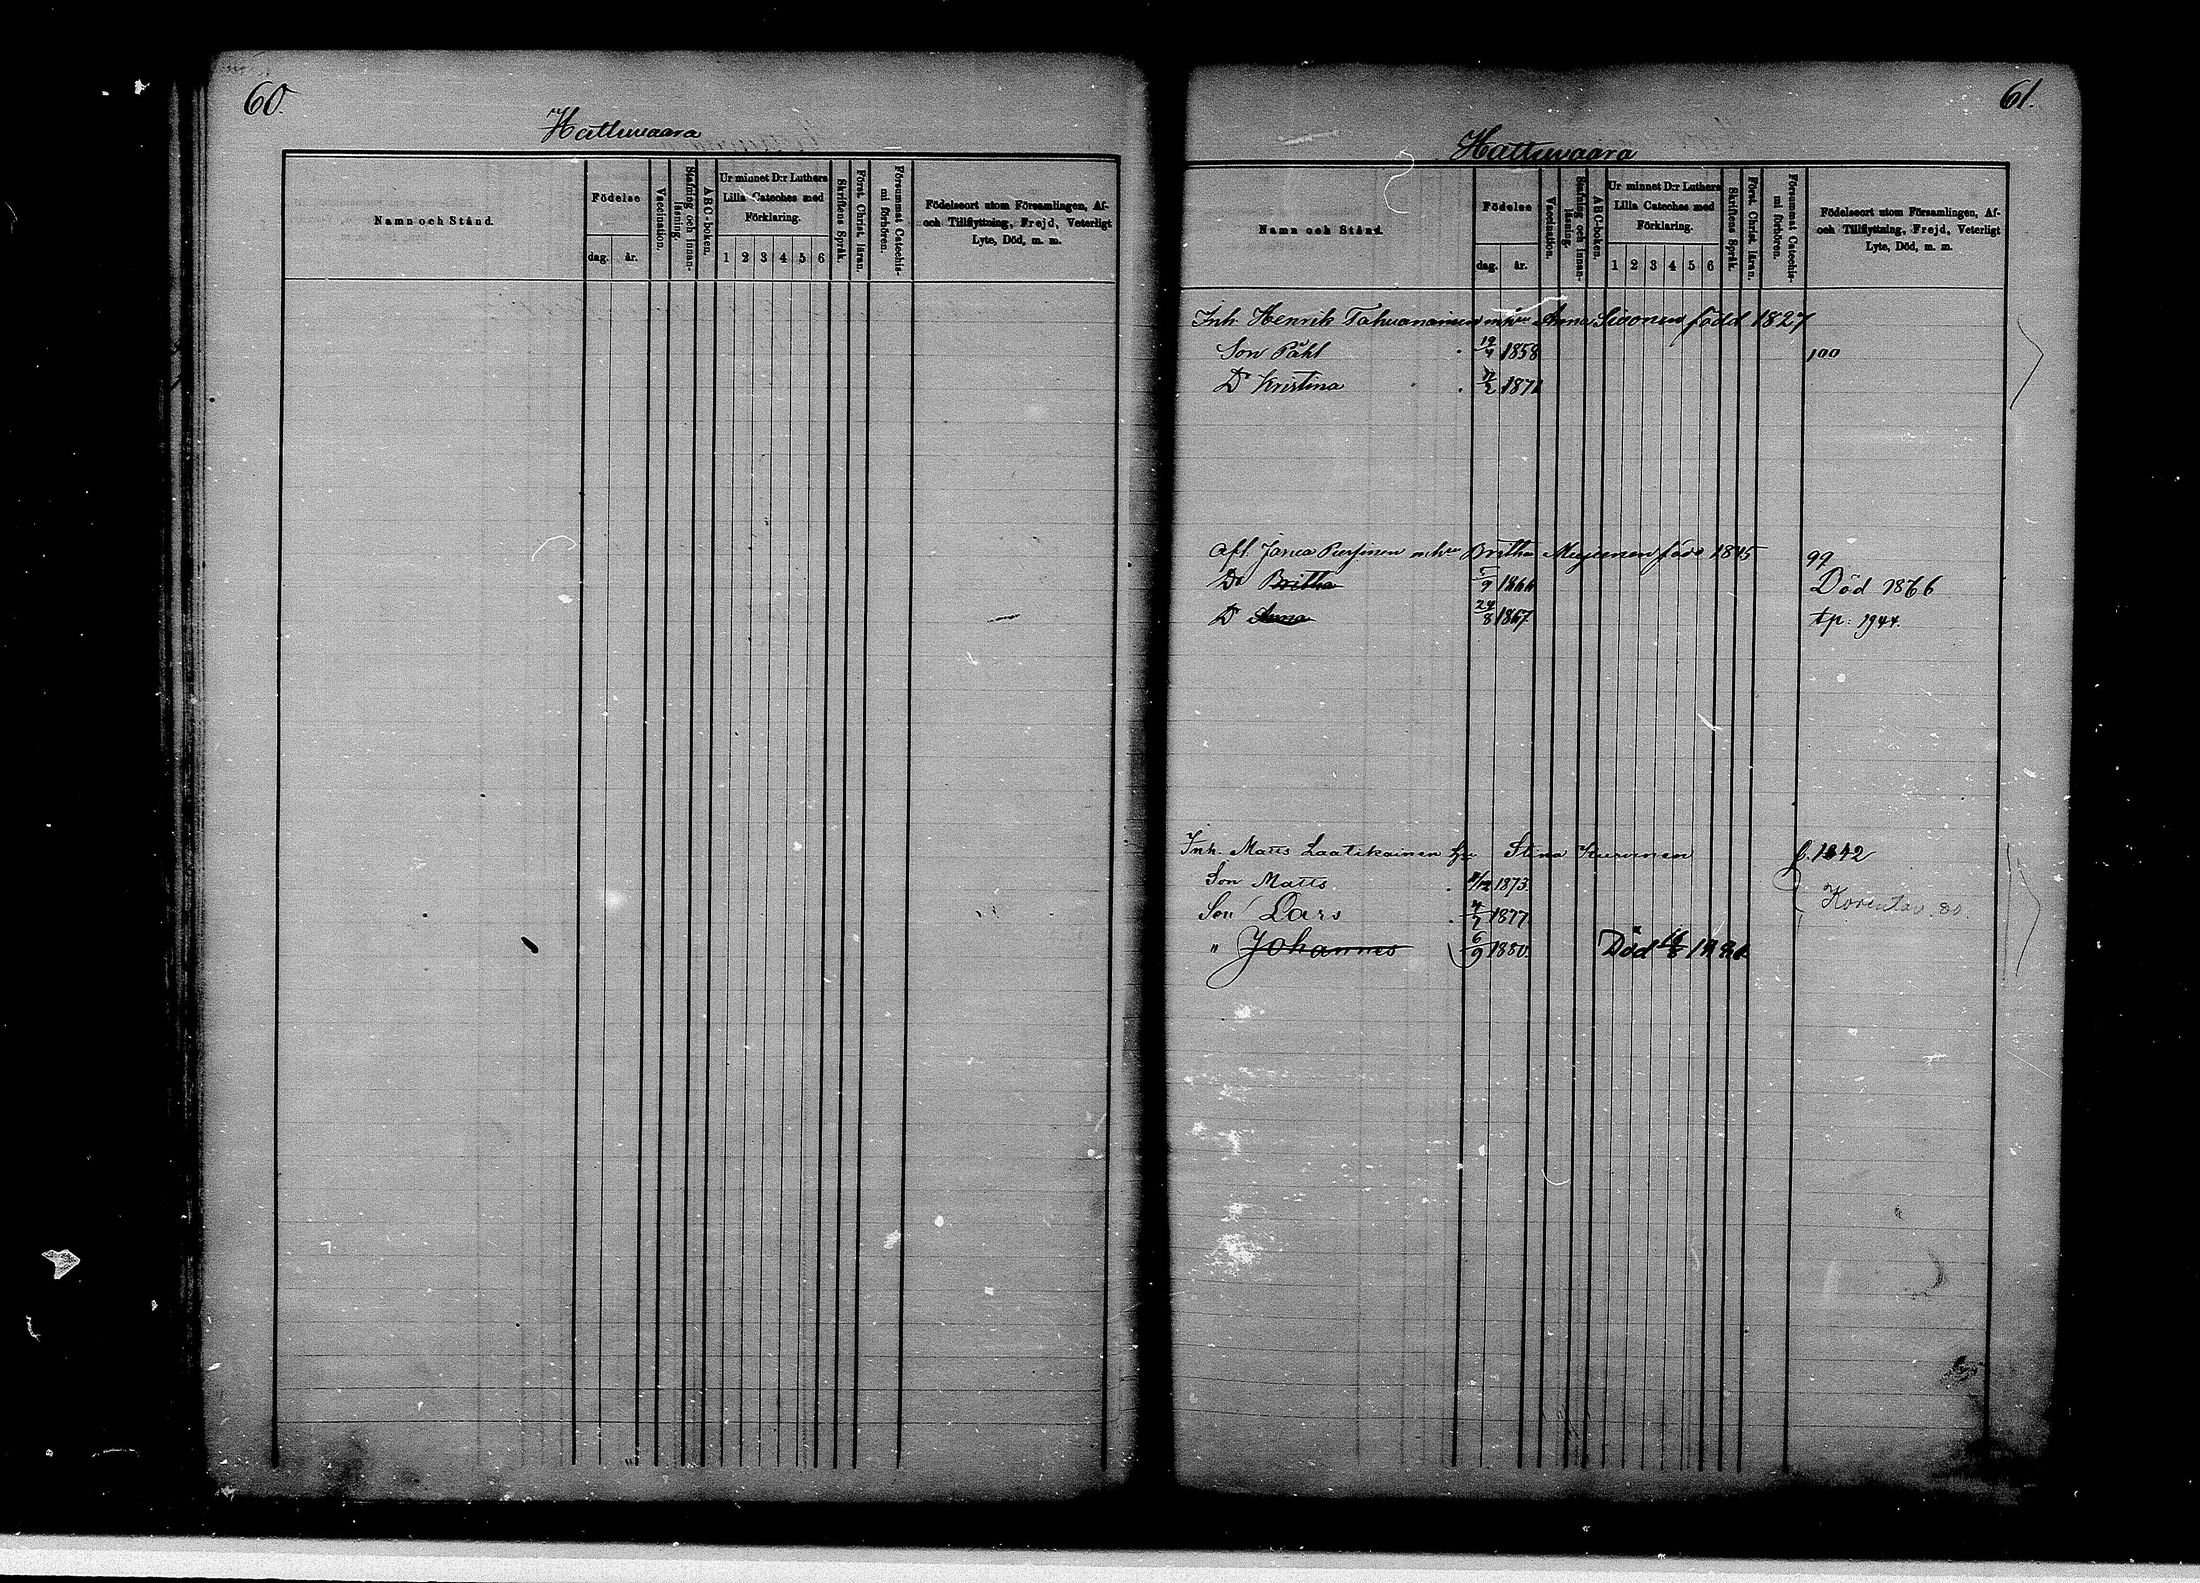 60.
Hattuvaara
Namn och Stånd.
Födelse
dag.
år.
Vaccination.
Stafning och innan-läsning.
ABC-boken.
Ur minnet D:r Luthers Lilla Cateches med Förklaring.
1 2 3 4 5 6
Skriftens Språk.
Först. Christ. läran.
Försummat Catechis-mi förhören.
Födelseort utom Församlingen, Af- och Tillflyttning, Frejd, Veterligt Lyte, Död, m. m.
61.
Hattuvaara
Namn och Stånd.
Födelse
dag.
år.
Vaccination.
Stafning och innan-läsning.
ABC-boken.
Ur minnet D:r Luthers Lilla Cateches med Förklaring.
1 2 3 4 5 6
Skriftens Språk.
Först. Christ. läran.
Försummat Catechis-mi förhören.
Födelseort utom Församlingen, Af- och Tillflyttning, Frejd, Veterligt Lyte, Död, m. m.
Inh. Henrik Tahvanainen Anna född 1827
Son Påhl 1858 100
Dr Kristina 1871
Afl. Britha född 1845 99
Dr Britha 5/9 1866 Död 1866
Dr Anna 24/8 1867 tp. 1944.
Inh. Matts Laatikainen hu Stina f. 1842
Son Matts /12 1873.
Son Lars 1877.
" Johannes 6/9 1880. Död